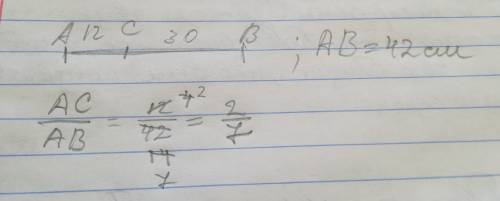 A 12 C 30 B ; AB = 42 см
AC/AB = 12/42 = 2/7
4 2
14
7